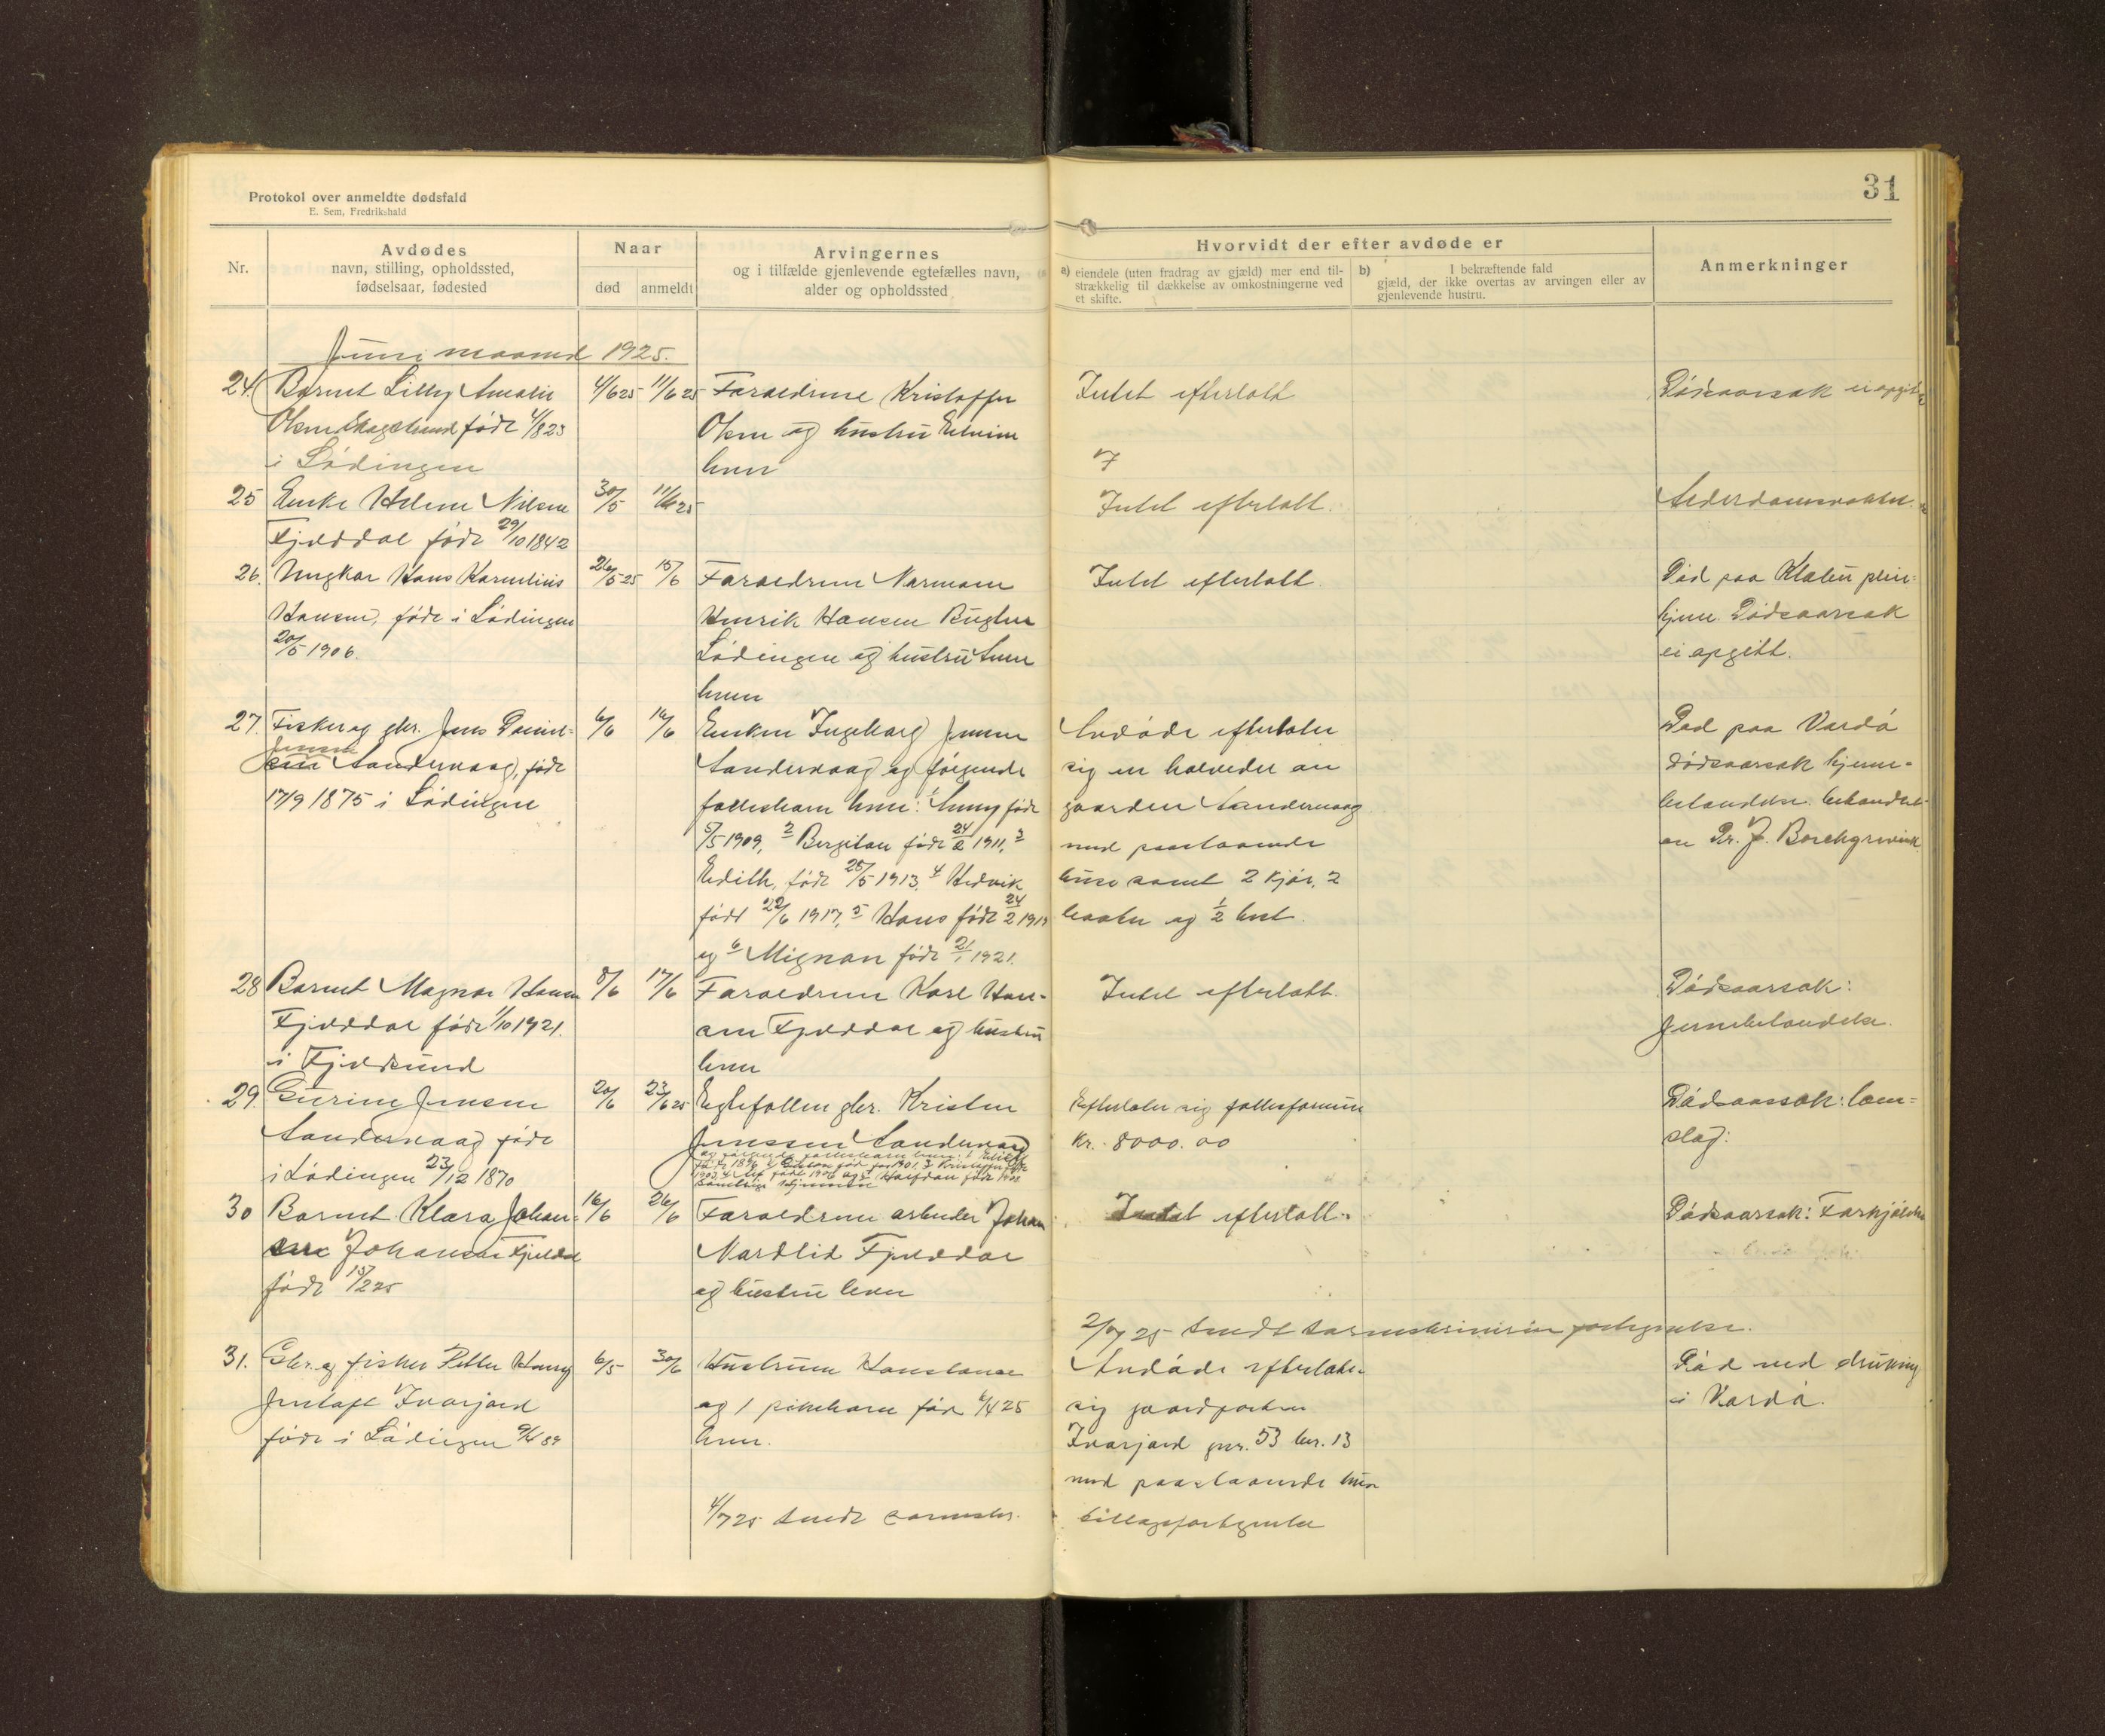 31
Protokol over anmeldte dødsfald
E. Sem, Fredrikshald
Nr.
Avdødes
navn, stilling, opholdssted,
fødselsaar, fødested
Naar
død
anmeldt
Arvingernes
og i tilfælde gjenlevende egtefælles navn,
alder og opholdssted
Hvorvidt der efter avdøde er
a) eiendele (uten fradrag av gjæld) mer end til-
strækkelig til dækkelse av omkostningerne ved
et skifte.
b) I bekræftende fald
gjæld, der ikke overtas av arvingen eller av
gjenlevende hustru.
Anmerkninger
Juni maaned 1925.
24. Barnet Lilly Amalie
Olsen født 4/8 23
i Lødingen
4/6 25
11/6 25
Foraeldrene Kristoffer
Olsen og hustru
her
Intet efterlatt
Dødsaarsak ei opgitt
25 Enke Helene Nilsen
Fjelddal født 29/10 1842
30/5
11/6 25
Intet efterlatt.
Alderdomssvakhet.
26. Ungkar Hans Kornelius
Hansen, født i Lødingen
20/5 1906.
26/5 25
15/6
Foraeldrene Normann
Henrik Hansen
Lødingen og hustru
her
Intet efterlatt.
Død paa
hjem. Dødsaarsak
ei opgitt.
27. Fisker og gbr. Jens Daniel
Jensen
Sandervaag, født
17/9 1875 i Lødingen
6/6
16/6
Enken Ingeborg Jensen
Sandervaag og følgende
fællesbarn her: 1 Jenny født
5/5 1909, 2 Bergitan født 24/2 1911, 3
Edith, født 25/5 1913, 4 Hedvik
født 22/6 1917, 5 Hans født 24/2
og 6 Mignon født 21/1 1921.
Avdøde efterlater
sig en halvedel av
gaarden Sandervaag
med paastaaende
huse samt 2 kjør, 2
baater og 1/2 hest.
Død paa Vardø
dødsaarsak hjerne-
betændelse. behandlet
av Dr. J. Borchgrevink
28 Barnet Magnar Hansen
Fjelddal født 1/10 1921.
i Fjeldsund
8/6
17/6
Foraeldrene Karl Han-
sen Fjelddal og hustru
her
Intet efterlatt.
Dødsaarsak:
29. Gurine Jensen
Sandervaag født
i Lødingen 23/12 1870
20/6
23/6 25
Egtefællen gbr. Kristen
Jenssen Sandervaag
og følgende fællesbarn her:
Efterlater sig fællesformue
Kr. 8000.00
Dødsaarsak: lam-
slag.
30 Barnet Klara Johan-
Johansen Fjelddal
født 15/2 25
16/6
26/6
Foraeldrene arbeider Johan
Nordlid Fjelddal
og hustru her
Intet efterlatt.
Dødsaarsak: Forkjølelse
2/7 25 Sendt forlegnelse.
31. Gbr. og fisker Petter Henry
Jentoft Ivarjord
født i Lødingen 9/4 89
6/5
30/6
Hustruen Konstance
og 1 pikebarn før 6/4 25
her.
4/7 25 Sendt
Avdøde efterlater
sig gaardparten
Ivarjord gnr. 53 bnr. 13
med paastaaende huse
Død ved drukning
i Vardø.